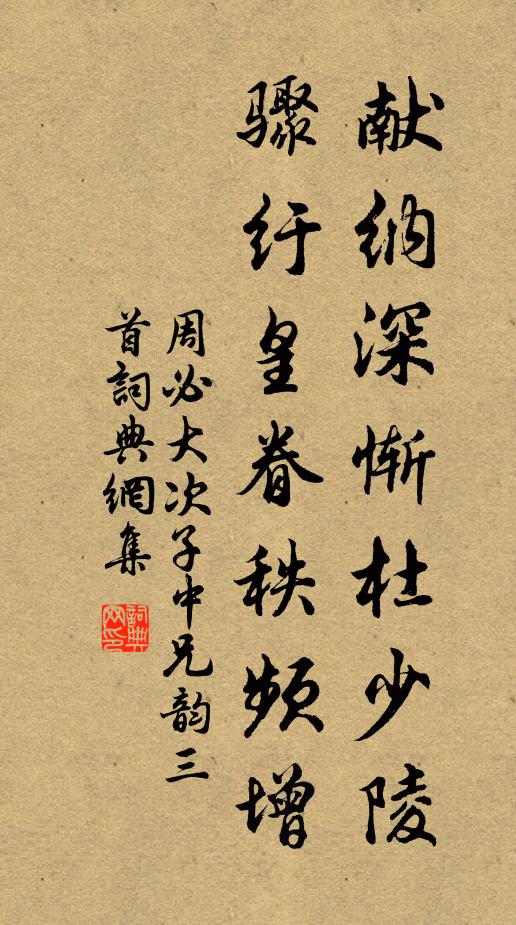 献纳深惭杜少陵
骤纡皇眷秩频增
周必大次子中兄韵三
首詞典網集
詞典网印